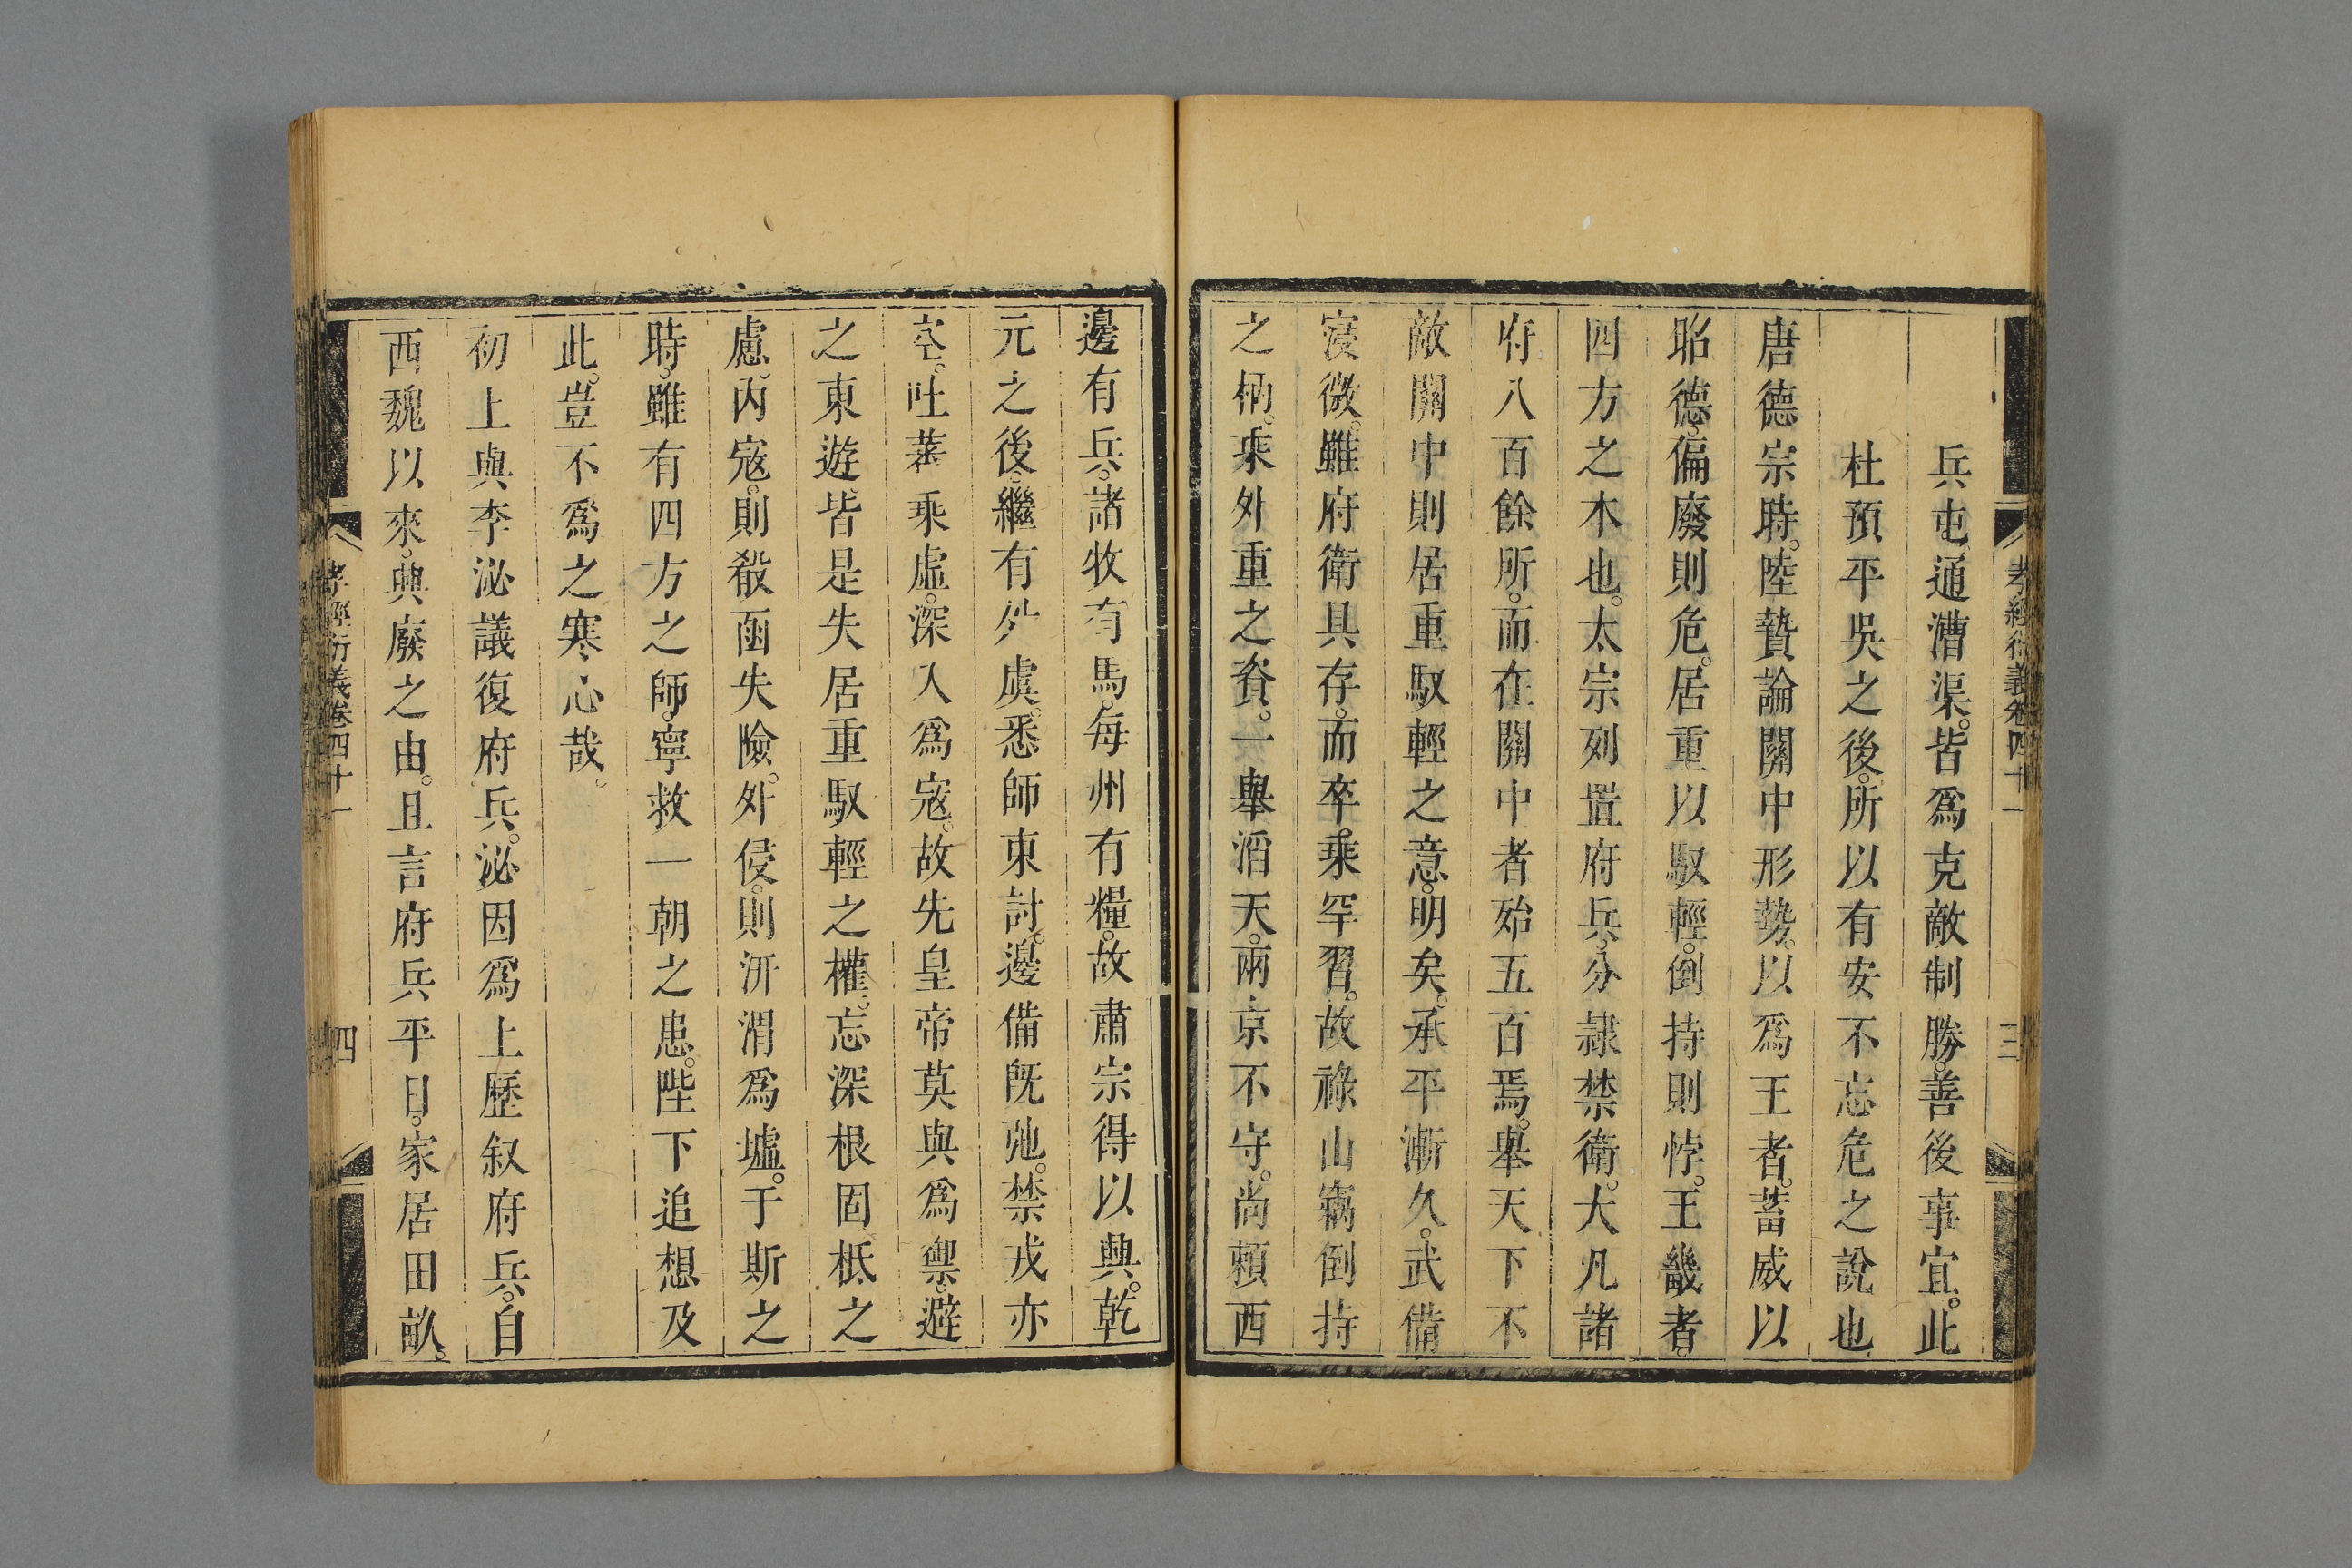 孝經衍義卷四十一
三
兵屯通漕渠。皆爲克敵制勝。善後事宜。此
杜預平吳之後。所以有安不忘危之說也。
唐德宗時。陸贄論關中形勢。以爲王者。蓄威以
昭德。偏廢則危。居重以馭輕。倒持則悖。王畿者。
四方之本也。太宗列置府兵。分隷禁衛。大凡諸
府八百餘所。而在關中者殆五百焉。舉天下不
敵關中則居重馭輕之意。明矣。承平漸久。武備
寖微。雖府衛具存。而卒乗罕習。故祿山竊倒持
之柄。乘外重之資。一舉滔天。兩京不守。尚頼西
邊有兵。諸牧有馬。每州有糧。故肅宗得以興。乾
元之後。繼有外虞。悉師東討。邊備旣弛。禁戎亦
空。吐蕃乘虛。深入爲寇。故先皇帝莫與爲禦。避
之東遊。皆是失居重馭輕之權。忘深根固柢之
慮。內寇。則殽函失險。外侵。則汧渭爲墟。于斯之
時。雖有四方之師。寧救一朝之患。陛下追想及
此。豈不爲之寒心哉。
初上與李泌議復府兵。泌因爲上歷叙府兵。自
西魏以來。興廢之由。且言府兵平日。家居田畝。
孝經衍義卷四十一
四